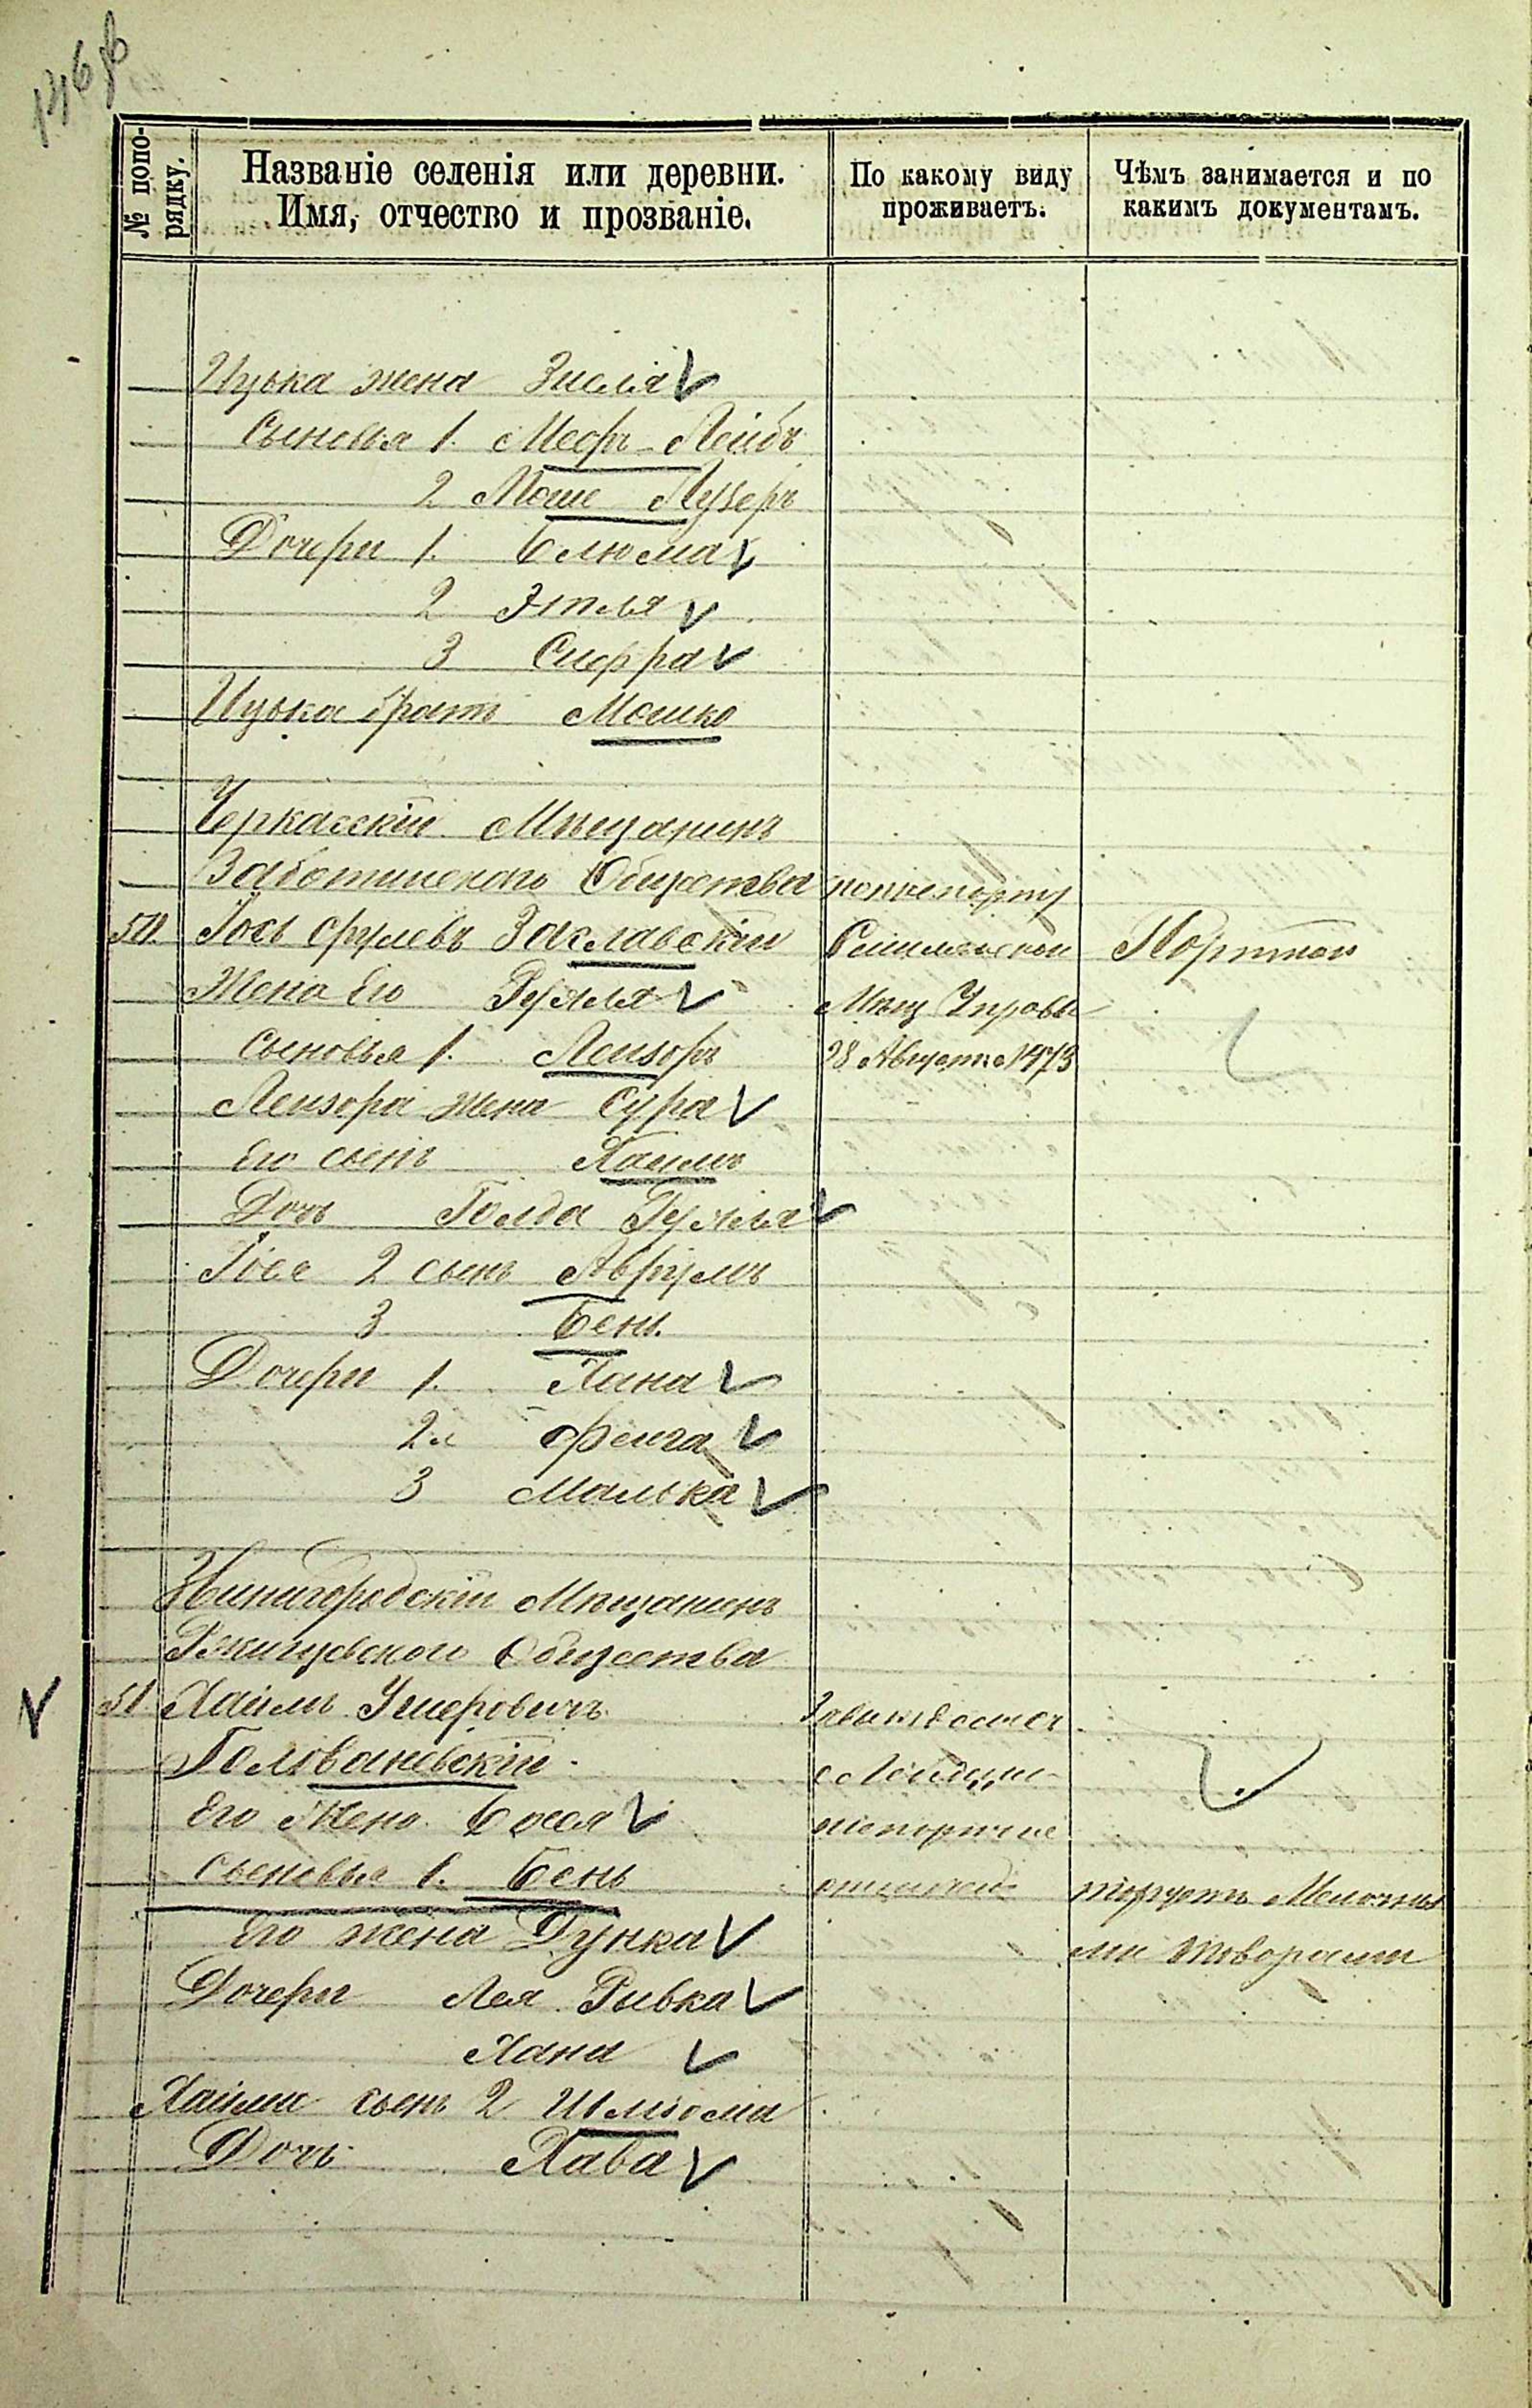 № попо-
рядку.
Названіе селенія или деревни.
Имя, отчество и прозваніе.
По какому виду
проживаетъ.
Чѣмъ занимается и по
какимъ документамъ.
Ицька жена Зисля
Сыновья 1. Меоръ-Лейбъ
2 Моше Лузеръ
Дочери 1. Блюма
2 Этля
3 Сифра
Ицька братъ Мошко
Черкасскій Мѣщанинъ
Заботинскаго Общества паспорту
50. Іось Срулевъ Заславскій Портной
Жена его Рухля Мѣщ Управы
Сыновья 1. Лейзоръ 28 Августа 1873
Лейзора жена Сура
Его сынъ Хаимъ
Дочь Голда Рухля
Іося 2 сынъ Аврумъ
3 Бень
Дочери 1. Хана
2я Фейга
3 Малька
Звинигородскій Мѣщанинъ
Ржищевскаго Общества
51. Хаимъ Ушеровичъ
Голованевскій
Его Жена Бася
Сыновья 1. Бень торгуетъ Мелочны
Его жена Дунка ми товарами
Дочери Лея Ривка
Хана
Хаима сынъ 2 Шліома
Дочь Хава